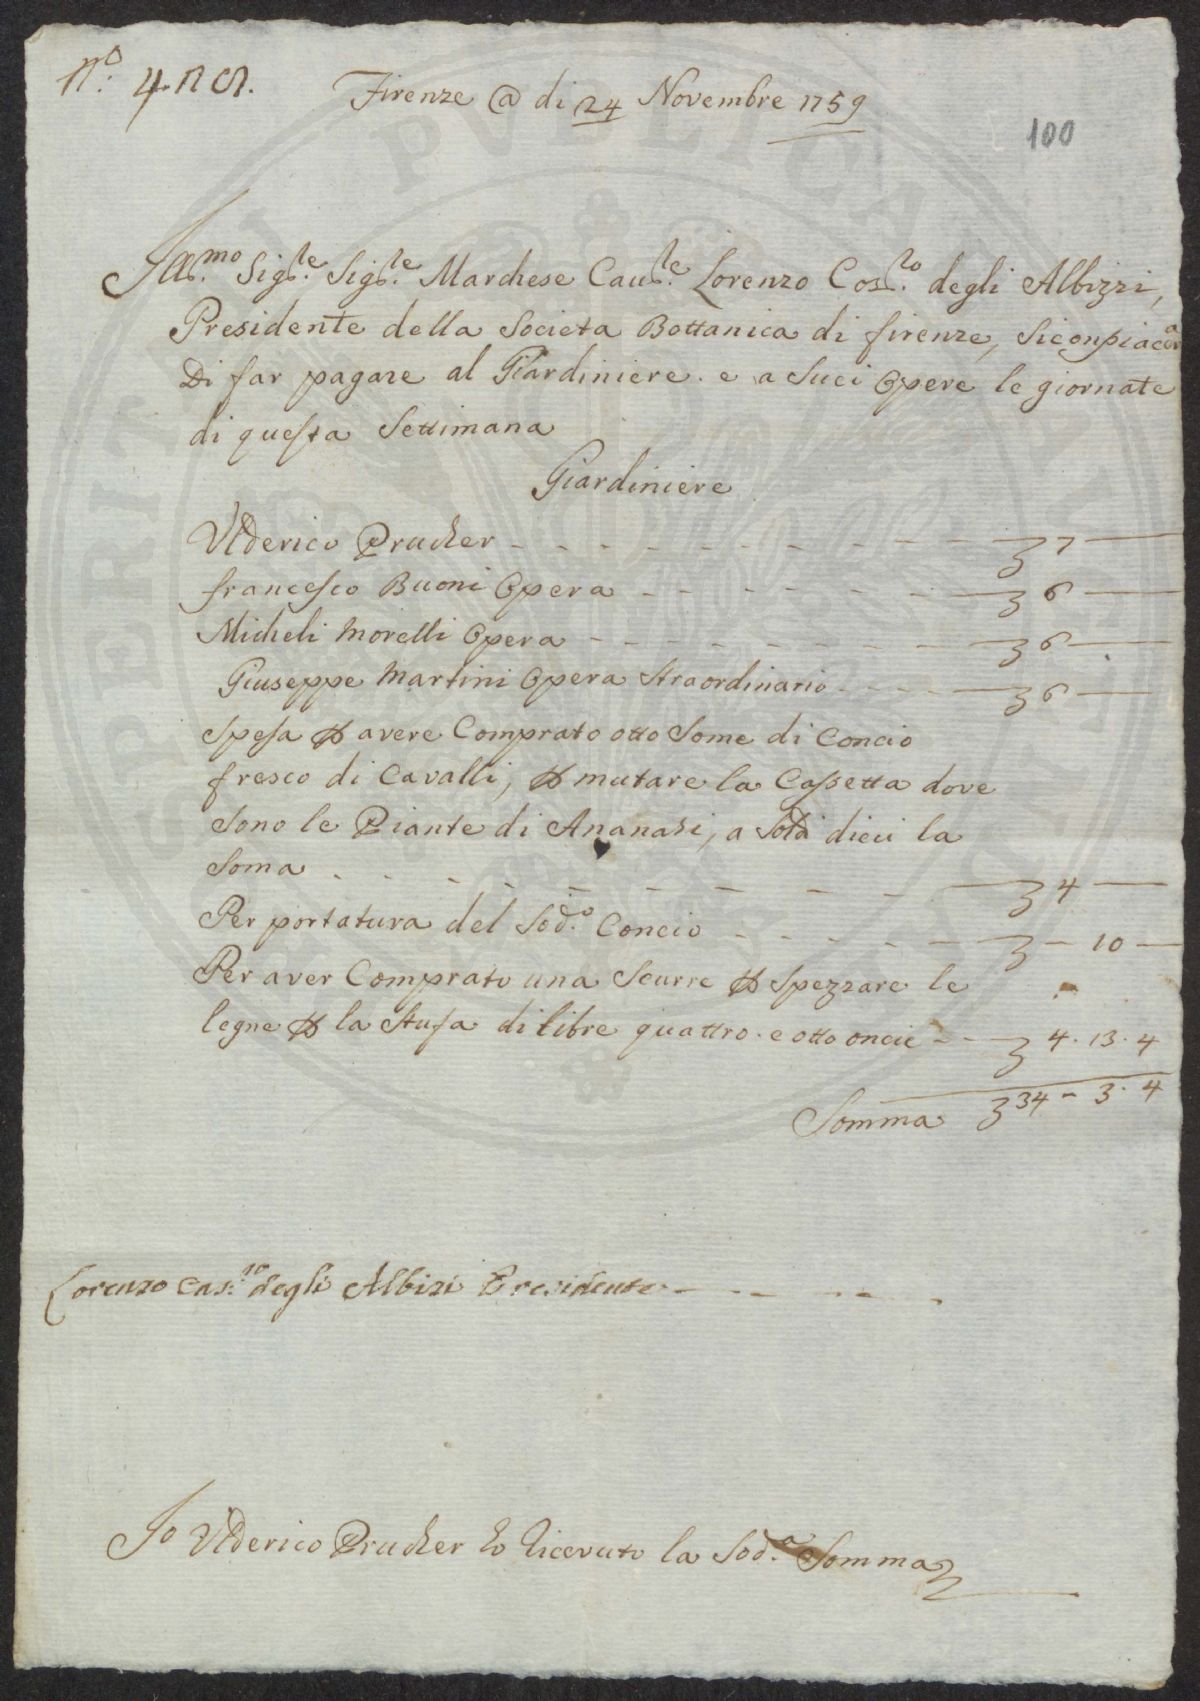 N.o 4
Firenze @ di 24 Novembre 1759
100
Ill.mo Sig.re Sig.re Marchese Cau.re Lorenzo Cos.to degli Albizzi,
Presidente della Societa Bottanica di firenze, si conpiacera
Di far pagare al Giardiniere. e a suoi Opere le giornate
di questa Settimana
Giardiniere
Ulderico Prucker - - - - - - £ 7 —
francesco Buoni Opera - - - - - £ 6 —
Micheli Morelli Opera - - - - - £ 6 —
Giuseppe Martini Opera straordinario - - - £ 6 —
Spesa ꝑ avere Comprato otto Some di Concio
fresco di Cavalli, ꝑ mutare la Cassetta dove
Sono le Piante di Ananasi, a Soldi dieci la
Soma - - - - - - £ 4 —
Per portatura del Sod.o Concio - - - - £ — 10 —
Per aver Comprato una Scurre ꝑ spezzare le
legne ꝑ la Stufa di libre quattro. e otto oncie - - £ 4. 13. 4
Somma £ 34 - 3. 4
Lorenzo Cas.to degli Albizi Presidente - - - -
Io Ulderico Prucker ho ricevuto la Sod.a Somma
PVBLICAE